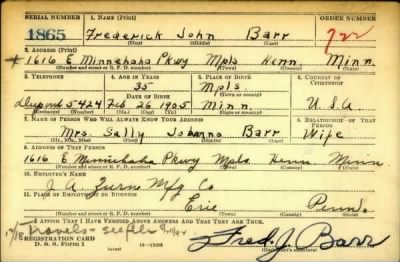 SERIAL NUMBER 1. NAME (Print) ORDER NUMBER
1865 Frederick John Barr 722
(First) (Middle) (Last)
2. ADDRESS (Print)
* 1616 E Minnehaha Pkwy Mpls Henn Minn.
(Number and street or R. F. D. number) (Town) (County) (State)
3. TELEPHONE 4. AGE IN YEARS 5. PLACE OF BIRTH 6. COUNTRY OF CITIZENSHIP
35 Mpls
DATE OF BIRTH (Town or county)
Dupont 5424 Feb 26 1905 Minn. U.S.A.
7. NAME OF PERSON WHO WILL ALWAYS KNOW YOUR ADDRESS 8. RELATIONSHIP OF THAT PERSON
Mrs. Sally Johanna Barr Wife
(Mr., Mrs., Miss) (First) (Middle) (Last)
9. ADDRESS OF THAT PERSON
1616 E Minnehaha Pkwy Mpls. Henn. Minn.
(Number and street or R. F. D. number) (Town) (County) (State)
10. EMPLOYER'S NAME
J. A. Zurn Mfg Co
11. PLACE OF EMPLOYMENT OR BUSINESS
Erie Penn.
(Number and street or R. F. D. number) (Town) (County) (State)
I AFFIRM THAT I HAVE VERIFIED ABOVE ANSWERS AND THAT THEY ARE TRUE.
Travels
REGISTRATION CARD
D. S. S. Form 1 Fred. J. Barr